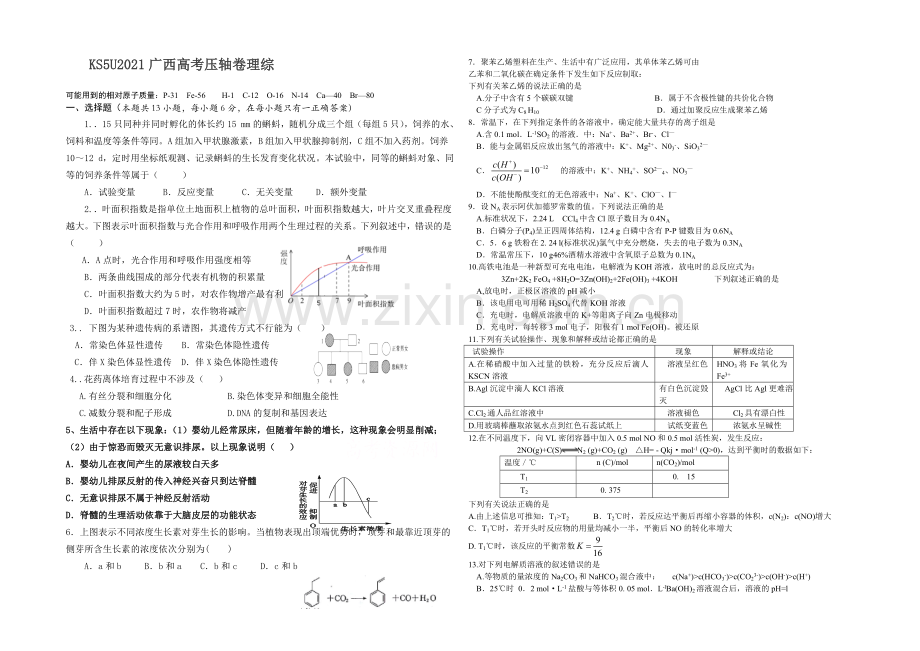 KS5U2021广西高考压轴卷理综
可能用到的相对原子质量：P-31 Fe-56 H-1 C-12 O-16 N-14 Ca—40 Br—80
一、选择题（本题共13小题，每小题6分，在每小题只有一正确答案）
1．．15只同种并同时孵化的体长约15 mm的蝌蚪，随机分成三个组（每组5只），饲养的水、
饲料和温度等条件等同。A组加入甲状腺激素，B组加入甲状腺抑制剂，C组不加入药剂。饲养
10～12 d，定时用坐标纸观测、记录蝌蚪的生长发育变化状况。本试验中，同等的蝌蚪对象、同
等的饲养条件等属于（ ）
A．试验变量 B．反应变量 C．无关变量 D．额外变量
2．．叶面积指数是指单位土地面积上植物的总叶面积，叶面积指数越大，叶片交叉重叠程度
越大。下图表示叶面积指数与光合作用和呼吸作用两个生理过程的关系。下列叙述中，错误的是
（ ）
A．A点时，光合作用和呼吸作用强度相等
B．两条曲线围成的部分代表有机物的积累量
C．叶面积指数大约为5时，对农作物增产最有利
D．叶面积指数超过7时，农作物将减产
强度
呼吸作用
A
光合作用
O 2 5 7 9 叶面积指数
3．．下图为某种遗传病的系谱图，其遗传方式不行能为（ ）
A．常染色体显性遗传 B．常染色体隐性遗传
C．伴X染色体显性遗传 D．伴X染色体隐性遗传
1 2
3 4 5 6
正常男女
患病男女
4．．花药离体培育过程中不涉及（ ）
A.有丝分裂和细胞分化 B.染色体变异和细胞全能性
C.减数分裂和配子形成 D.DNA的复制和基因表达
5、生活中存在以下现象：（1）婴幼儿经常尿床，但随着年龄的增长，这种现象会明显削减；
（2）由于惊恐而毁灭无意识排尿。以上现象说明（ ）
A．婴幼儿在夜间产生的尿液较白天多
B．婴幼儿排尿反射的传入神经兴奋只到达脊髓
C．无意识排尿不属于神经反射活动
D．脊髓的生理活动依靠于大脑皮层的功能状态
对芽生长的效应
促进
抑制
a b c
0
生长素浓度
6．上图表示不同浓度生长素对芽生长的影响。当植物表现出顶端优势时，顶芽和最靠近顶芽的
侧芽所含生长素的浓度依次分别为( )
A．a和b B．b和a C．b和c D．c和b
+CO₂ → +CO+H₂O
7．聚苯乙烯塑料在生产、生活中有广泛应用，其单体苯乙烯可由
乙苯和二氧化碳在确定条件下发生如下反应制取：
下列有关苯乙烯的说法正确的是
A.分子中含有5个碳碳双键 B．属于不含极性键的共价化合物
C分子式为C₈H₁₀ D．通过加聚反应生成聚苯乙烯
8．常温下，在下列指定条件的各溶液中，确定能大量共存的离子组是
A.含0.1 mol．L-¹SO₂的溶液．中：Na⁺、Ba²⁺、Br–、Cl—
B．能与金属铝反应放出氢气的溶液中：K⁺、Mg²⁺、N0₃-、SiO₃²—
C．c(H⁺)/c(OH⁻)=10⁻¹² 的溶液中：K⁺、NH₄⁺、SO²—₄、NO₃—
D．不能使酚酞变红的无色溶液中：Na⁺、K⁺、ClO—、I—
9．设NA表示阿伏加德罗常数的值。下列说法正确的是
A.标准状况下，2.24 L CCl₄中含Cl原子数目为0.4NA
B．白磷分子(P₄)呈正四周体结构，12.4 g白磷中含有P-P键数目为0.6NA
C．5．6 g铁粉在2. 24 l(标准状况)氯气中充分燃烧，失去的电子数为0.3NA
D．常温常压下，10 g46%酒精水溶液中含氧原子总数为0.1NA
10.高铁电池是一种新型可充电电池，电解液为KOH溶液，放电时的总反应式为：
3Zn+2K₂FeO₄+8H₂O=3Zn(OH)₂+2Fe(OH)₃+4KOH 下列叙述正确的是
A,放电时，正极区溶液的pH减小
B．该电用电可用稀H₂SO₄代替KOH溶液
C．充电时，电解质溶液中的K+等阳离子向Zn电极移动
D．充电时，每转移3 mol电子，阳极有1 mol Fe(OH)₃被还原
11.下列有关试验操作、现象和解释或结论都正确的是
试验操作 现象 解释或结论
A.在稀硝酸中加入过量的铁粉，充分反应后滴人KSCN溶液 溶液呈红色 HNO₃将Fe氧化为Fe³⁺
B.Agl沉淀中滴人KCl溶液 有白色沉淀毁灭 AgCl比AgI更难溶
C.Cl₂通人品红溶液中 溶液褪色 Cl₂具有漂白性
D.用玻璃棒蘸取浓氨水点到红色石蕊试纸上 试纸变蓝色 浓氨水呈碱性
12.在不同温度下，向VL密闭容器中加入0.5 mol NO和0.5 mol活性炭，发生反应：
2NO(g)+C(S)⇌N₂(g)+CO₂(g) △H= - Qkj·mol-¹ (Q>0)，达到平衡时的数据如下：
温度/℃ n (C)/mol n(CO₂)/mol
T₁ 0． 15
T₂ 0. 375
下列有关说法正确的是
A.由上述信息可推知：T₁>T₂ B．T₂℃时，若反应达平衡后再缩小容器的体积，c(N₂)：c(NO)增大
C．T₁℃时，若开头时反应物的用量均减小一半，平衡后NO的转化率增大
D. T₁℃时，该反应的平衡常数K=9/16
13.对下列电解质溶液的叙述错误的是
A.等物质的量浓度的Na₂CO₃和NaHCO₃混合液中： c(Na⁺)>c(HCO₃-)>c(CO₃²-)>c(OH-)>c(H⁺)
B．25℃时 0．2 mol·L-¹盐酸与等体积0. 05 mol．L-¹Ba(OH)₂溶液混合后，溶液的pH=l